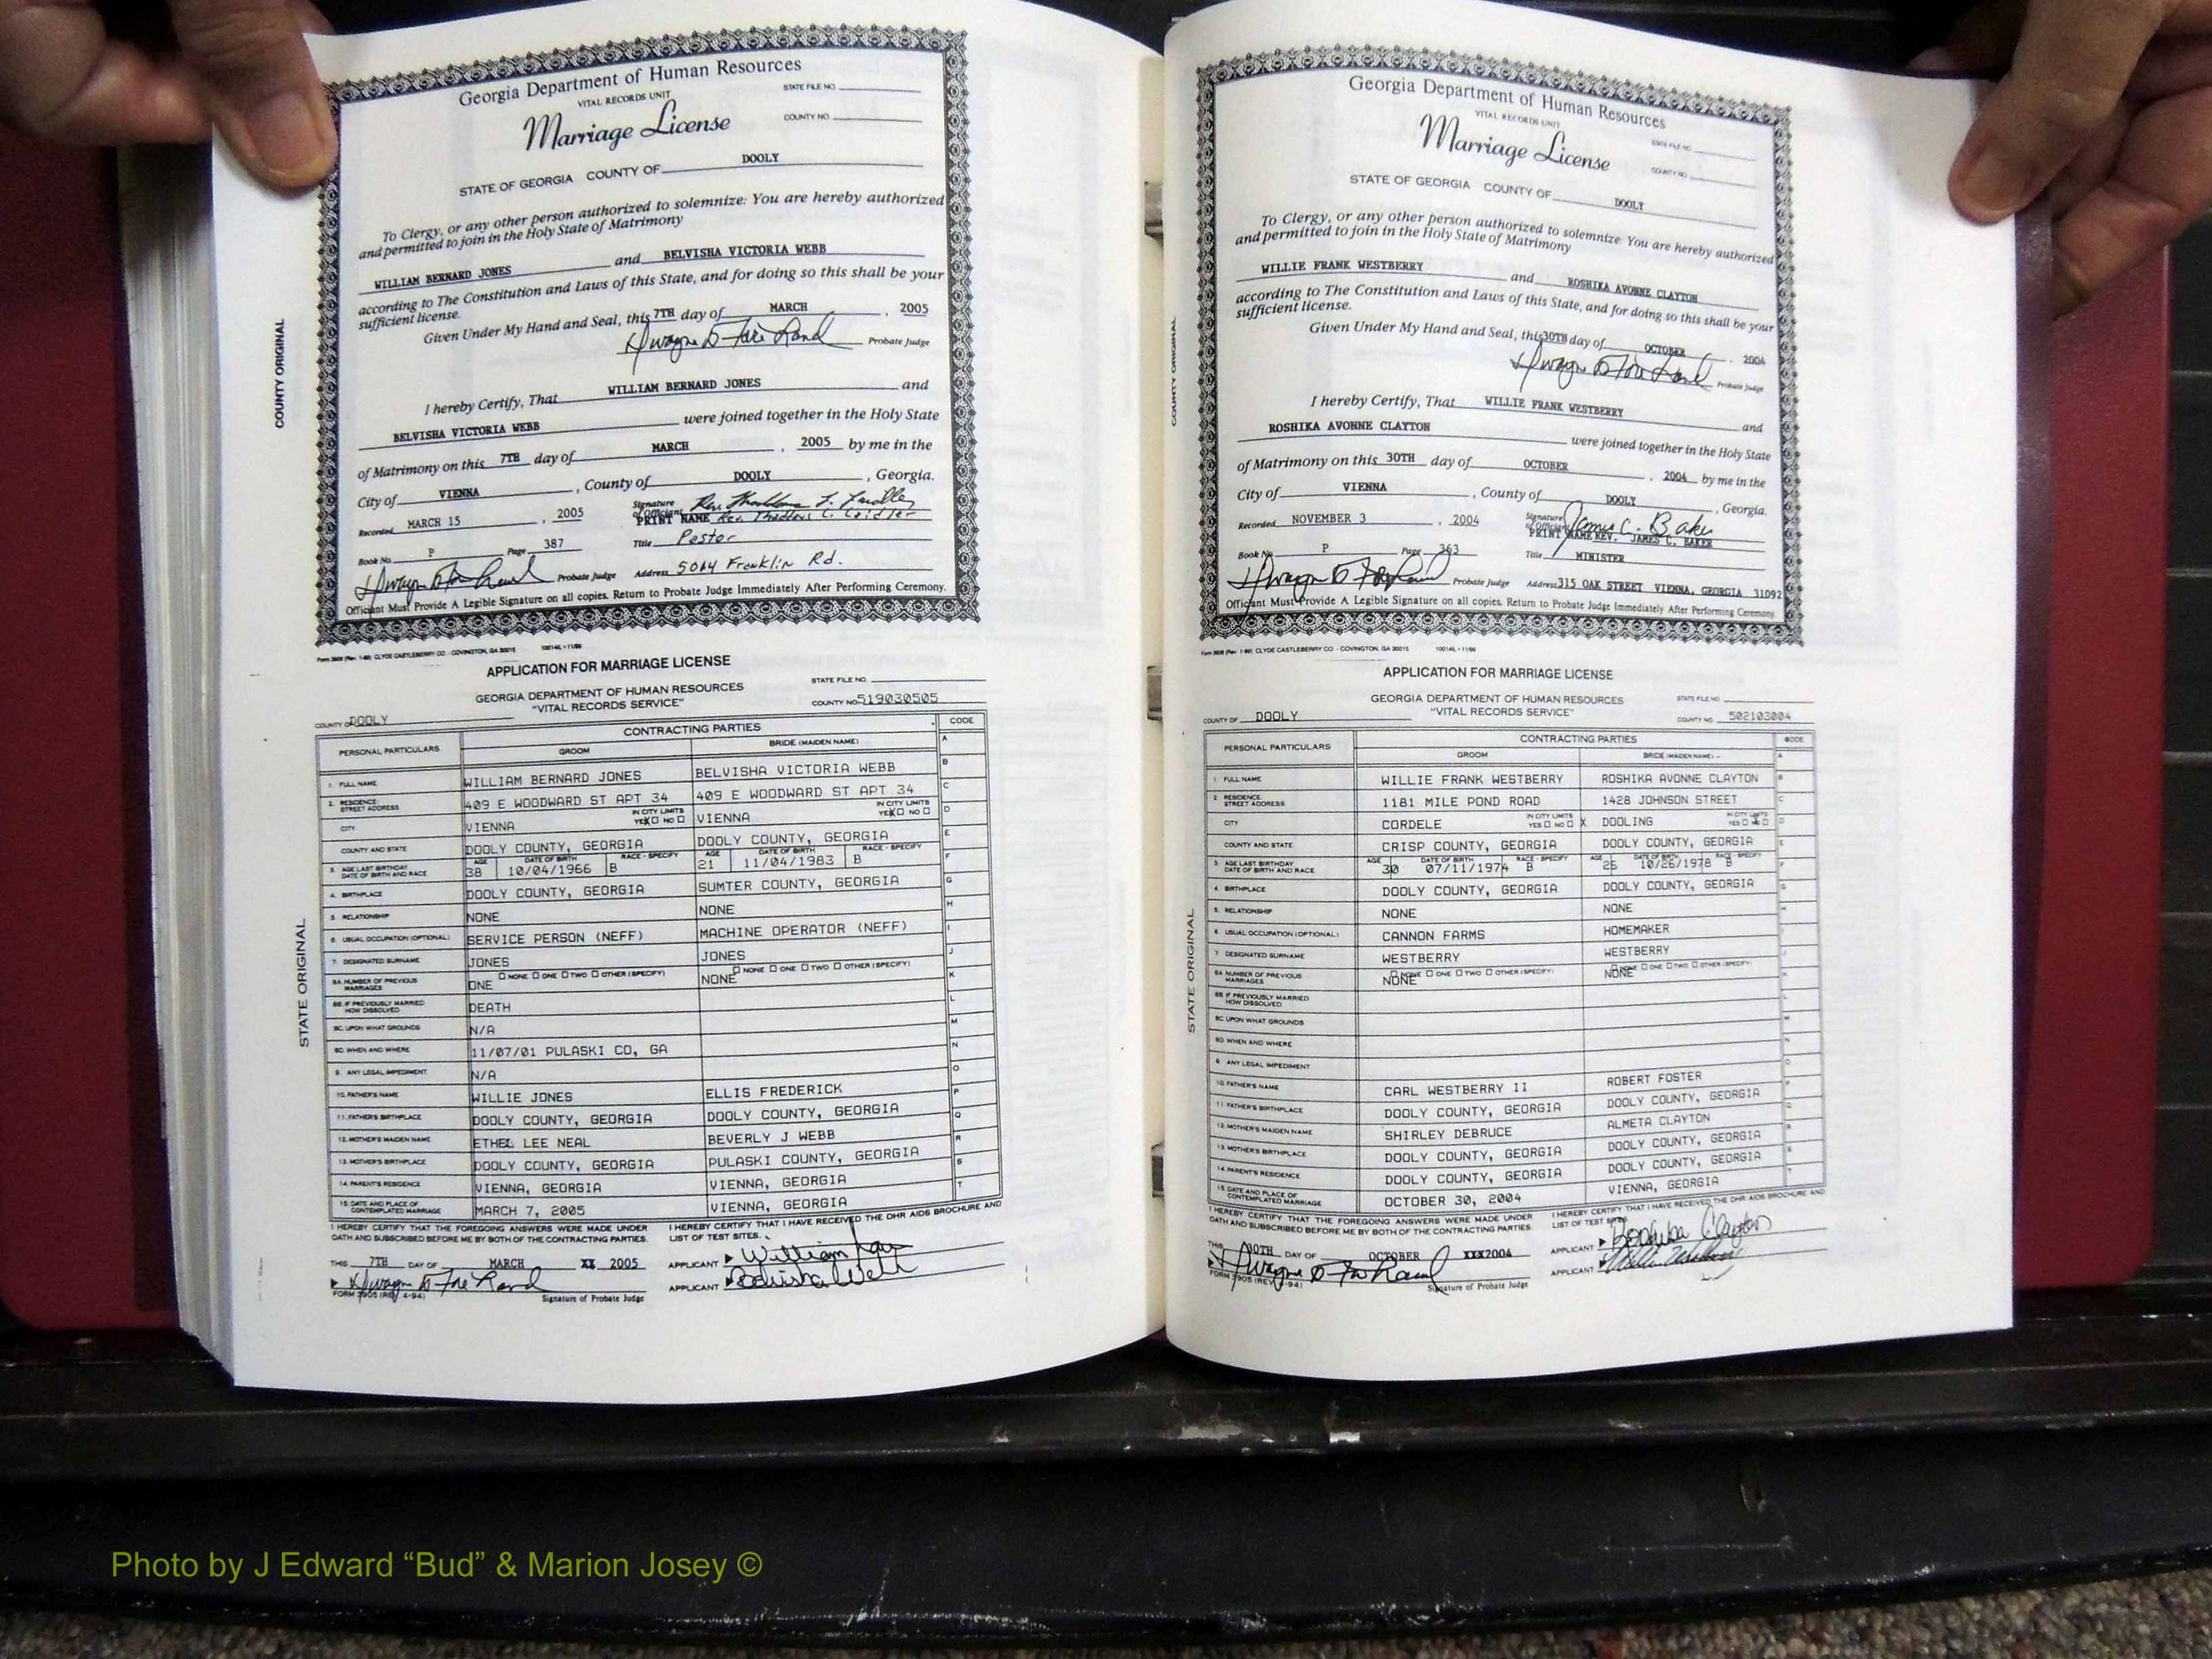 Georgia Department of Human Resources
VITAL RECORDS UNIT
STATE FILE NO.
Marriage License
COUNTY NO.
STATE OF GEORGIA COUNTY OF DOOLY
To Clergy, or any other person authorized to solemnize: You are hereby authorized
and permitted to join in the Holy State of Matrimony
WILLIAM BERNARD JONES and BELVISHA VICTORIA WEBB
according to The Constitution and Laws of this State, and for doing so this shall be your
sufficient license.
Given Under My Hand and Seal, this 7TH day of MARCH , 2005
Probate Judge
I hereby Certify, That WILLIAM BERNARD JONES and
BELVISHA VICTORIA WEBB were joined together in the Holy State
of Matrimony on this 7TH day of MARCH , 2005 by me in the
City of VIENNA , County of DOOLY , Georgia.
Recorded MARCH 15 , 2005
Signature of Officiant
PRINT NAME
Book No. P Page 387 Title Pastor
Probate Judge Address Franklin Rd.
Officiant Must Provide A Legible Signature on all copies. Return to Probate Judge Immediately After Performing Ceremony.
COUNTY ORIGINAL
Form 3908 (Rev. 1-99) CLYDE CASTLEBERRY CO. - COVINGTON, GA 30015
APPLICATION FOR MARRIAGE LICENSE
GEORGIA DEPARTMENT OF HUMAN RESOURCES
"VITAL RECORDS SERVICE"
STATE FILE NO.
COUNTY NO. 519030505
COUNTY OF DOOLY
PERSONAL PARTICULARS CONTRACTING PARTIES CODE
GROOM BRIDE (MAIDEN NAME)
1. FULL NAME WILLIAM BERNARD JONES BELVISHA VICTORIA WEBB
2. RESIDENCE: STREET ADDRESS 409 E WOODWARD ST APT 34 409 E WOODWARD ST APT 34
CITY VIENNA IN CITY LIMITS YES X NO VIENNA IN CITY LIMITS YES X NO
COUNTY AND STATE DOOLY COUNTY, GEORGIA DOOLY COUNTY, GEORGIA
3. AGE LAST BIRTHDAY DATE OF BIRTH AND RACE AGE 38 DATE OF BIRTH 10/04/1966 RACE - SPECIFY B AGE 21 DATE OF BIRTH 11/04/1983 RACE - SPECIFY B
4. BIRTHPLACE DOOLY COUNTY, GEORGIA SUMTER COUNTY, GEORGIA
5. RELATIONSHIP NONE NONE
6. USUAL OCCUPATION (OPTIONAL) SERVICE PERSON (NEFF) MACHINE OPERATOR (NEFF)
7. DESIGNATED SURNAME JONES JONES
8A. NUMBER OF PREVIOUS MARRIAGES □ NONE □ ONE □ TWO □ OTHER (SPECIFY) ONE □ NONE □ ONE □ TWO □ OTHER (SPECIFY) NONE
8B. IF PREVIOUSLY MARRIED HOW DISSOLVED DEATH
8C. UPON WHAT GROUNDS N/A
8D. WHEN AND WHERE 11/07/01 PULASKI CO, GA
9. ANY LEGAL IMPEDIMENT N/A
10. FATHER'S NAME WILLIE JONES ELLIS FREDERICK
11. FATHER'S BIRTHPLACE DOOLY COUNTY, GEORGIA DOOLY COUNTY, GEORGIA
12. MOTHER'S MAIDEN NAME ETHEL LEE NEAL BEVERLY J WEBB
13. MOTHER'S BIRTHPLACE DOOLY COUNTY, GEORGIA PULASKI COUNTY, GEORGIA
14. PARENT'S RESIDENCE VIENNA, GEORGIA VIENNA, GEORGIA
15. DATE AND PLACE OF CONTEMPLATED MARRIAGE MARCH 7, 2005 VIENNA, GEORGIA
A
B
C
D
E
F
G
H
I
J
K
L
M
N
O
P
Q
R
S
T
I HEREBY CERTIFY THAT THE FOREGOING ANSWERS WERE MADE UNDER
OATH AND SUBSCRIBED BEFORE ME BY BOTH OF THE CONTRACTING PARTIES.
I HEREBY CERTIFY THAT I HAVE RECEIVED THE DHR AIDS BROCHURE AND
LIST OF TEST SITES.
THIS 7TH DAY OF MARCH XX 2005 APPLICANT William
APPLICANT Belvisha Webb
FORM 3905 (REV. 4-94) Signature of Probate Judge
STATE ORIGINAL
Georgia Department of Human Resources
VITAL RECORDS UNIT
STATE FILE NO.
Marriage License
COUNTY NO.
STATE OF GEORGIA COUNTY OF DOOLY
To Clergy, or any other person authorized to solemnize: You are hereby authorized
and permitted to join in the Holy State of Matrimony
WILLIE FRANK WESTBERRY and ROSHIKA AVONNE CLAYTON
according to The Constitution and Laws of this State, and for doing so this shall be your
sufficient license.
Given Under My Hand and Seal, this 30TH day of OCTOBER , 2004
Probate Judge
I hereby Certify, That WILLIE FRANK WESTBERRY and
ROSHIKA AVONNE CLAYTON were joined together in the Holy State
of Matrimony on this 30TH day of OCTOBER , 2004 by me in the
City of VIENNA , County of DOOLY , Georgia.
Recorded NOVEMBER 3 , 2004
Signature of Officiant James C. Baker
PRINT NAME REV. JAMES C. BAKER
Book No. P Page 363 Title MINISTER
Probate Judge Address 315 OAK STREET VIENNA, GEORGIA 31092
Officiant Must Provide A Legible Signature on all copies. Return to Probate Judge Immediately After Performing Ceremony.
COUNTY ORIGINAL
Form 3908 (Rev. 1-99) CLYDE CASTLEBERRY CO. - COVINGTON, GA 30015
APPLICATION FOR MARRIAGE LICENSE
GEORGIA DEPARTMENT OF HUMAN RESOURCES
"VITAL RECORDS SERVICE"
STATE FILE NO.
COUNTY NO. 502103004
COUNTY OF DOOLY
PERSONAL PARTICULARS CONTRACTING PARTIES CODE
GROOM BRIDE (MAIDEN NAME)
1. FULL NAME WILLIE FRANK WESTBERRY ROSHIKA AVONNE CLAYTON
2. RESIDENCE: STREET ADDRESS 1181 MILE POND ROAD 1428 JOHNSON STREET
CITY CORDELE IN CITY LIMITS YES □ NO □ X DOOLING IN CITY LIMITS YES □ NO □
COUNTY AND STATE CRISP COUNTY, GEORGIA DOOLY COUNTY, GEORGIA
3. AGE LAST BIRTHDAY DATE OF BIRTH AND RACE AGE 30 DATE OF BIRTH 07/11/1974 RACE - SPECIFY B AGE 26 DATE OF BIRTH 10/26/1978 RACE - SPECIFY B
4. BIRTHPLACE DOOLY COUNTY, GEORGIA DOOLY COUNTY, GEORGIA
5. RELATIONSHIP NONE NONE
6. USUAL OCCUPATION (OPTIONAL) CANNON FARMS HOMEMAKER
7. DESIGNATED SURNAME WESTBERRY WESTBERRY
8A. NUMBER OF PREVIOUS MARRIAGES □ NONE □ ONE □ TWO □ OTHER (SPECIFY) NONE □ NONE □ ONE □ TWO □ OTHER (SPECIFY) NONE
8B. IF PREVIOUSLY MARRIED HOW DISSOLVED
8C. UPON WHAT GROUNDS
8D. WHEN AND WHERE
9. ANY LEGAL IMPEDIMENT
10. FATHER'S NAME CARL WESTBERRY II ROBERT FOSTER
11. FATHER'S BIRTHPLACE DOOLY COUNTY, GEORGIA DOOLY COUNTY, GEORGIA
12. MOTHER'S MAIDEN NAME SHIRLEY DEBRUCE ALMETA CLAYTON
13. MOTHER'S BIRTHPLACE DOOLY COUNTY, GEORGIA DOOLY COUNTY, GEORGIA
14. PARENT'S RESIDENCE DOOLY COUNTY, GEORGIA DOOLY COUNTY, GEORGIA
15. DATE AND PLACE OF CONTEMPLATED MARRIAGE OCTOBER 30, 2004 VIENNA, GEORGIA
I HEREBY CERTIFY THAT THE FOREGOING ANSWERS WERE MADE UNDER
OATH AND SUBSCRIBED BEFORE ME BY BOTH OF THE CONTRACTING PARTIES.
I HEREBY CERTIFY THAT I HAVE RECEIVED THE DHR AIDS BROCHURE AND
LIST OF TEST SITES.
THIS 30TH DAY OF OCTOBER XXX2004 APPLICANT Roshika Clayton
APPLICANT
FORM 3905 (REV. 4-94) Signature of Probate Judge
STATE ORIGINAL
Photo by J Edward “Bud” & Marion Josey ©